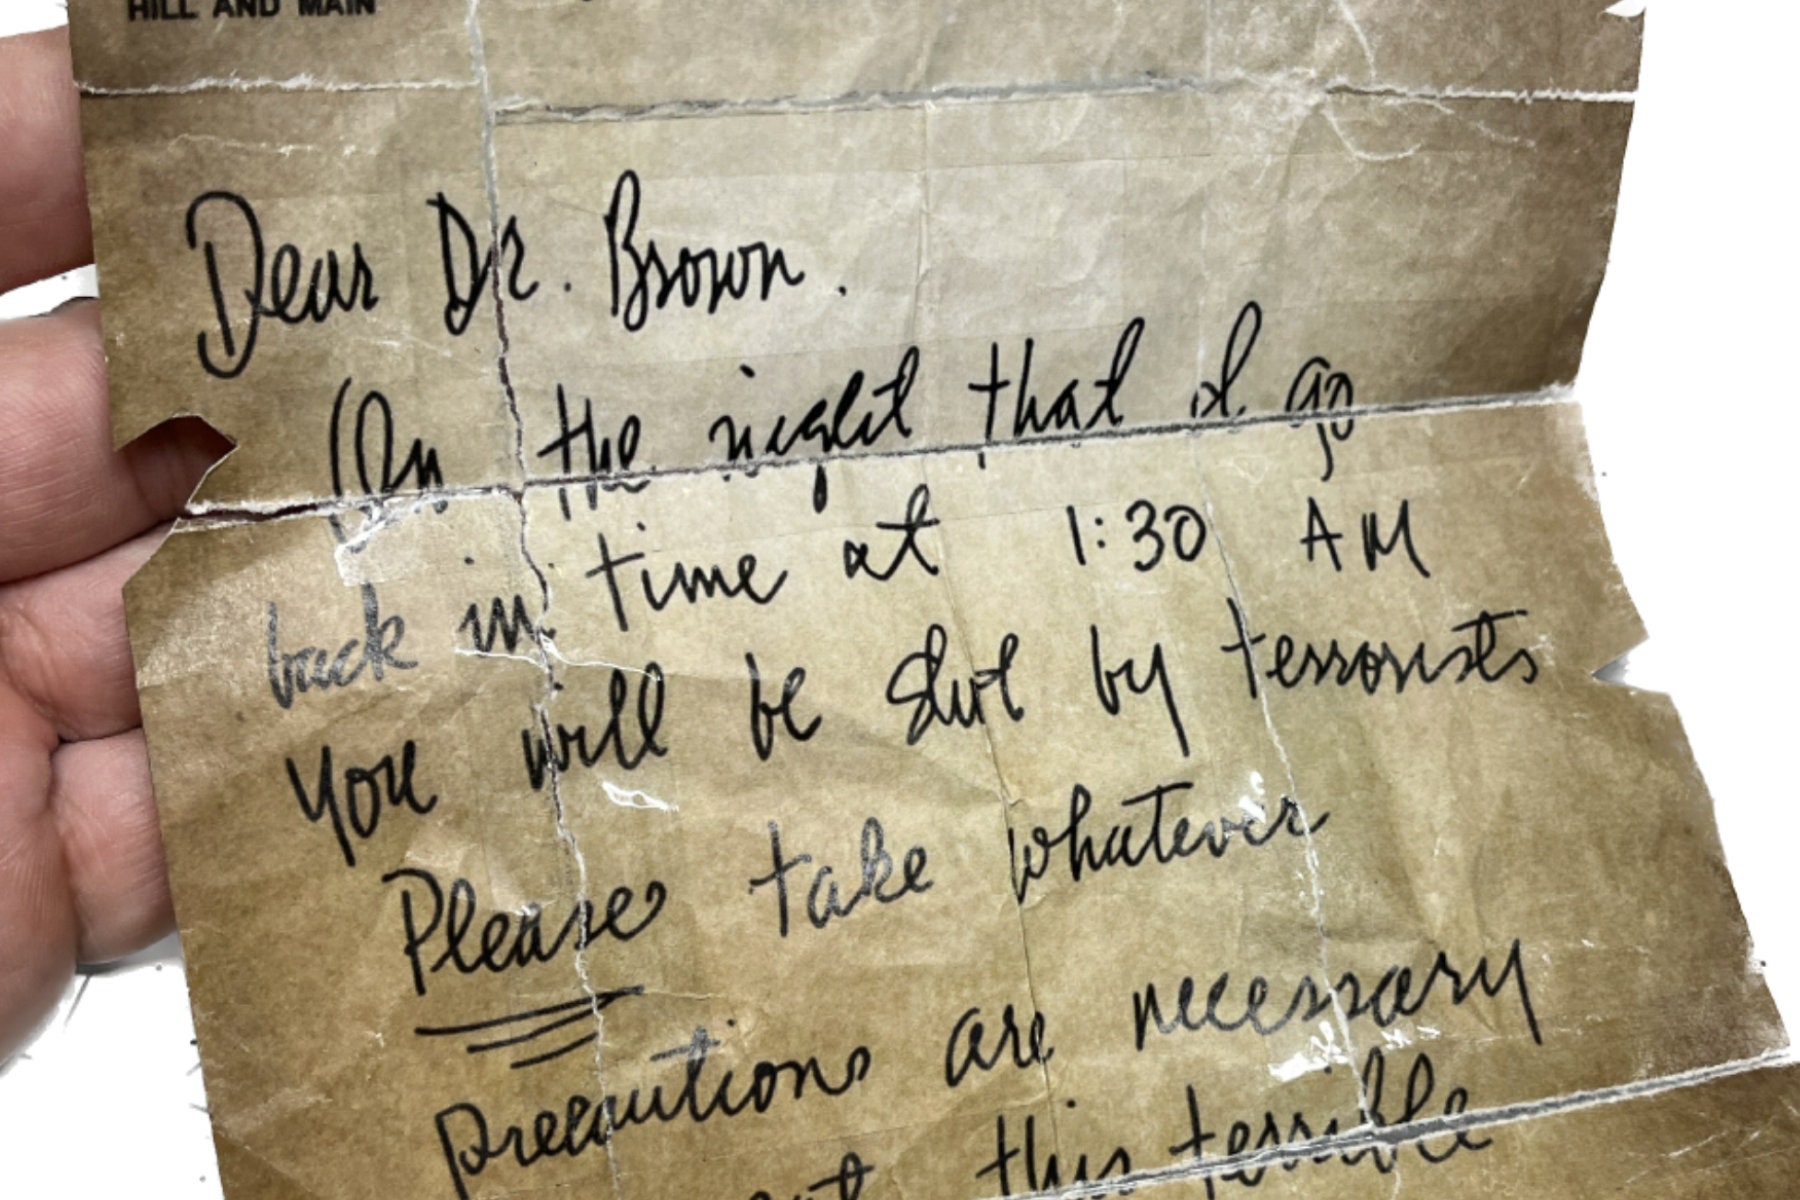 HILL AND MAIN
Dear Dr. Brown.
On the night that I go
back in time at 1:30 AM
you will be shot by terrorists
Please take whatever
precautions are necessary
this terrible